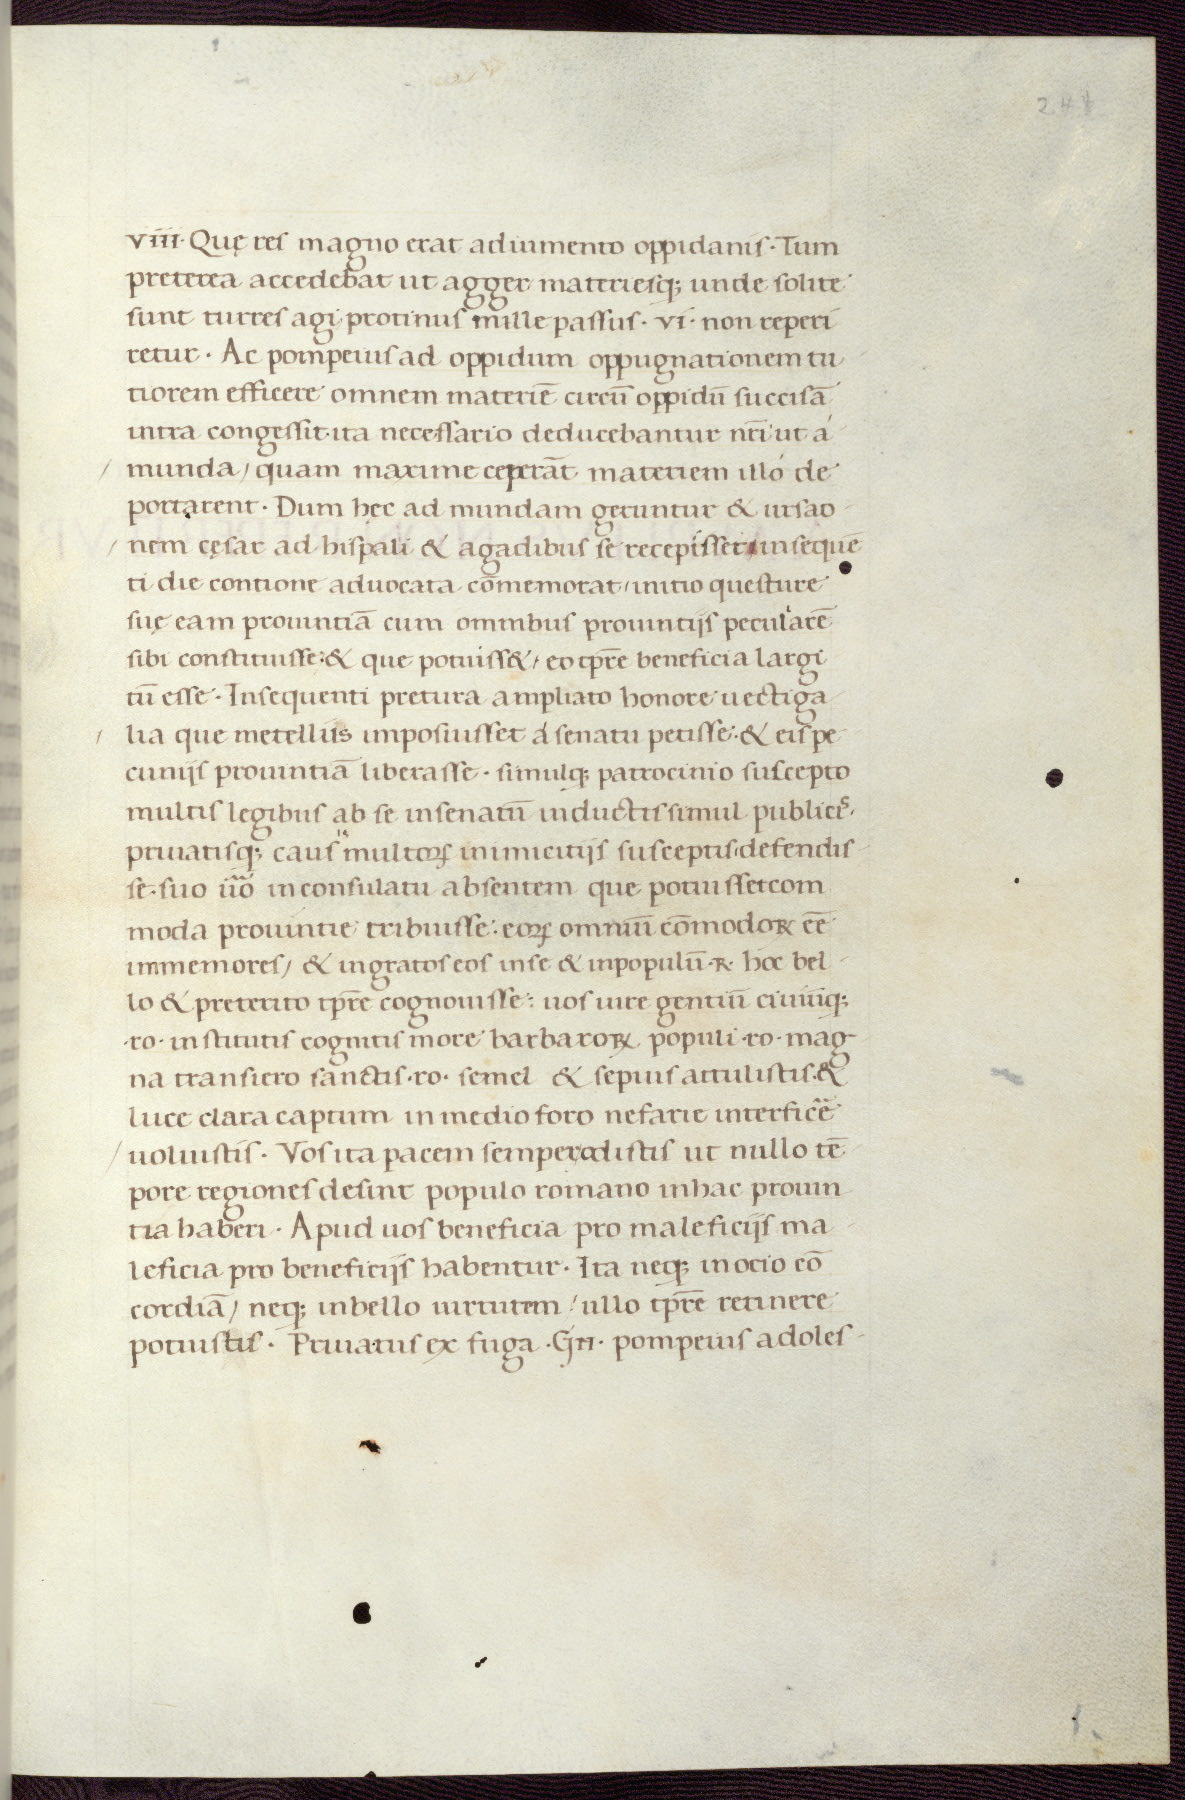 241
viii· Quę res magno erat adiumento oppidanis· Tum
preterea accedebat ut agger materiesq; unde solite
sunt turres agi protinus mille passus· vi· non reperi
retur· Ac pompeius ad oppidum oppugnationem tu
tiorem efficere omnem materiē circū oppidū succisā
intra congessit·ita necessario deducebantur nr̄i ut á
munda/ quam maxime ceperāt materiem illó de
portarent· Dum hęc ad mundam geruntur & ursao
nem cęsar ad hispali & agadibus se recepisset insequē
ti die contione aduocata cōmemorat/ initio questure
suę eam prouintiā cum omnibus prouintijs peculiarē
sibi constituisse:& que potuiss&/ eo tpr̄e beneficia largi
tū esse· Insequenti pretura ampliato honore uectiga
lia que metellus imposiusset á senatu petisse·& eis pe
cunijs prouintiā liberasse· simulq; patrocinio suscepto
multis legibus ab se insenatū inductis simul publicis·
priuatisq; caus̈ multoꝝ inimicitijs susceptis/defendis
se·suo ūo in consulatu absentem que potuissetcom
moda prouintie tribuisse·eoꝝ omniū cōmodoꝝ eē
immemores/ & ingratos eos inse & inpopulū·R· hoc bel
lo & preterito tpr̄e cognouisse: uos iure gentiū ciuiūq;
·ro· institutis cognitis more barbaroꝝ populi·ro·mag
na transiero sanctis·ro· semel & sepius attulistis·&
luce clara captum in medio foro nefarie interficē
uoluistis· Vos ita pacem semperodistis ut nullo tē
pore regiones desint populo romano inhac prouin
tia haberi· Apud uos beneficia pro maleficijs ma
leficia pro beneficijs habentur· Ita neq; inocio cō
cordiā/ neq; inbello uirtutem/ ullo tpr̄e retinere
potuistis· Priuatus ex fuga·Gn· pompeius adoles